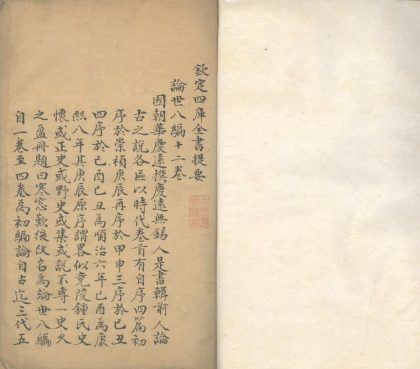 欽定四庫全書提要
論世八編十二卷
國朝華慶遠撰慶遠無錫人是書輯前人論
古之說各區以時代卷首有自序四篇初
序於崇禎庚辰再序於甲申三序於己丑
四序於己酉己丑為順治六年己酉為康
熙八年其庚辰原序謂畧似竟陵鍾氏史
懷或正史或野史或集或說不專一史久
之盈冊題曰寒窓歎後改名為論世八編
自一卷至四卷為初編論自古迄三代五